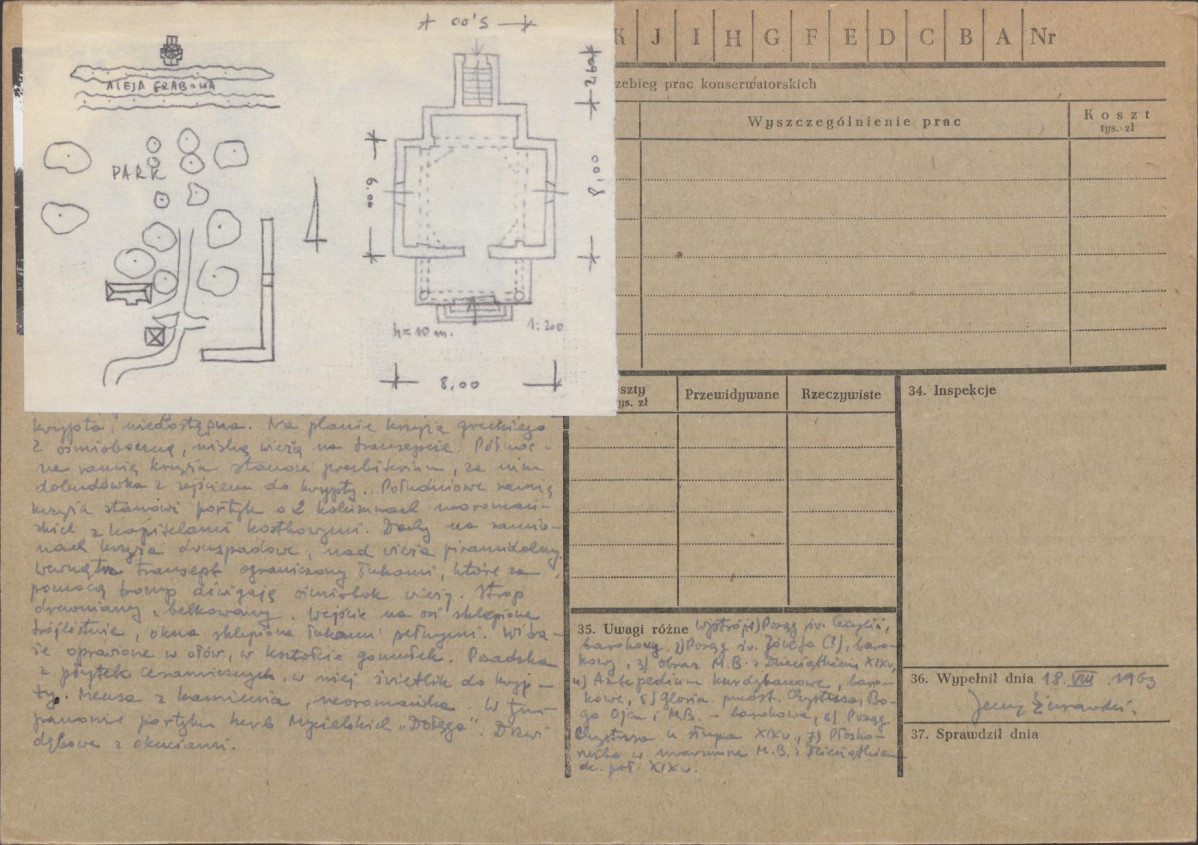 K J I H G F E D C B A Nr
zebieg prac konserwatorskich
Wyszczególnienie prac
Koszt
tys. zł
ALEJA GRABOWA
PARK
5,00
2,40
6.00
8,00
h = 10 m.
1:200
8,00
szty
ys. zł
Przewidywane
Rzeczywiste
34. Inspekcje
krypta, niedostępna. Na planie krzyża greckiego
z ośmioboczną, niską wieżą na transepcie. Północ-
ne ramię krzyża stanowi prezbiterium, za nim
dobudówka z zejściem do krypty. Południowe ramię
krzyża stanowi portyk o 2 kolumnach neoromań-
skich z kapitelami kostkowymi. Dachy na ramio-
nach krzyża dwuspadowe, nad wieżą piramidalny.
Wewnątrz transept ograniczony łukami, które za
pomocą tromp dźwigają ośmiobok wieży. Strop
drewniany, belkowany. Wejście na osi sklepione
trójlistnie, okna sklepione łukami pełnymi. Witra-
że oprawione w ołów, w kształcie gomułek. Posadzka
z płytek ceramicznych, w niej świetlik do kryp-
ty. Mensa z kamienia, neoromańska. W tym-
panonie portyku herb Mycielskich „Dołęga". Drzwi
dębowe z okuciami.
35. Uwagi różne Wystrój: 1) Posąg św. Cecylii,
barokowy, 2) Posąg św. Józefa (?), baro-
kowy, 3) obraz M.B. z Dzieciątkiem, XIX w.
4) Antepedium kurdybanowe, baro-
kowe, 5) Gloria, Chrystusa, Bo-
ga Ojca i M.B. - barokowe, 6) Posąg
Chrystusa u słupa XIX w., 7) Płasko-
rzeźba w marmurze M.B. z Dzieciątkiem
2 poł. XIX w.
36. Wypełnił dnia 18. VIII 1963
Jerzy Żurawski.
37. Sprawdził dnia